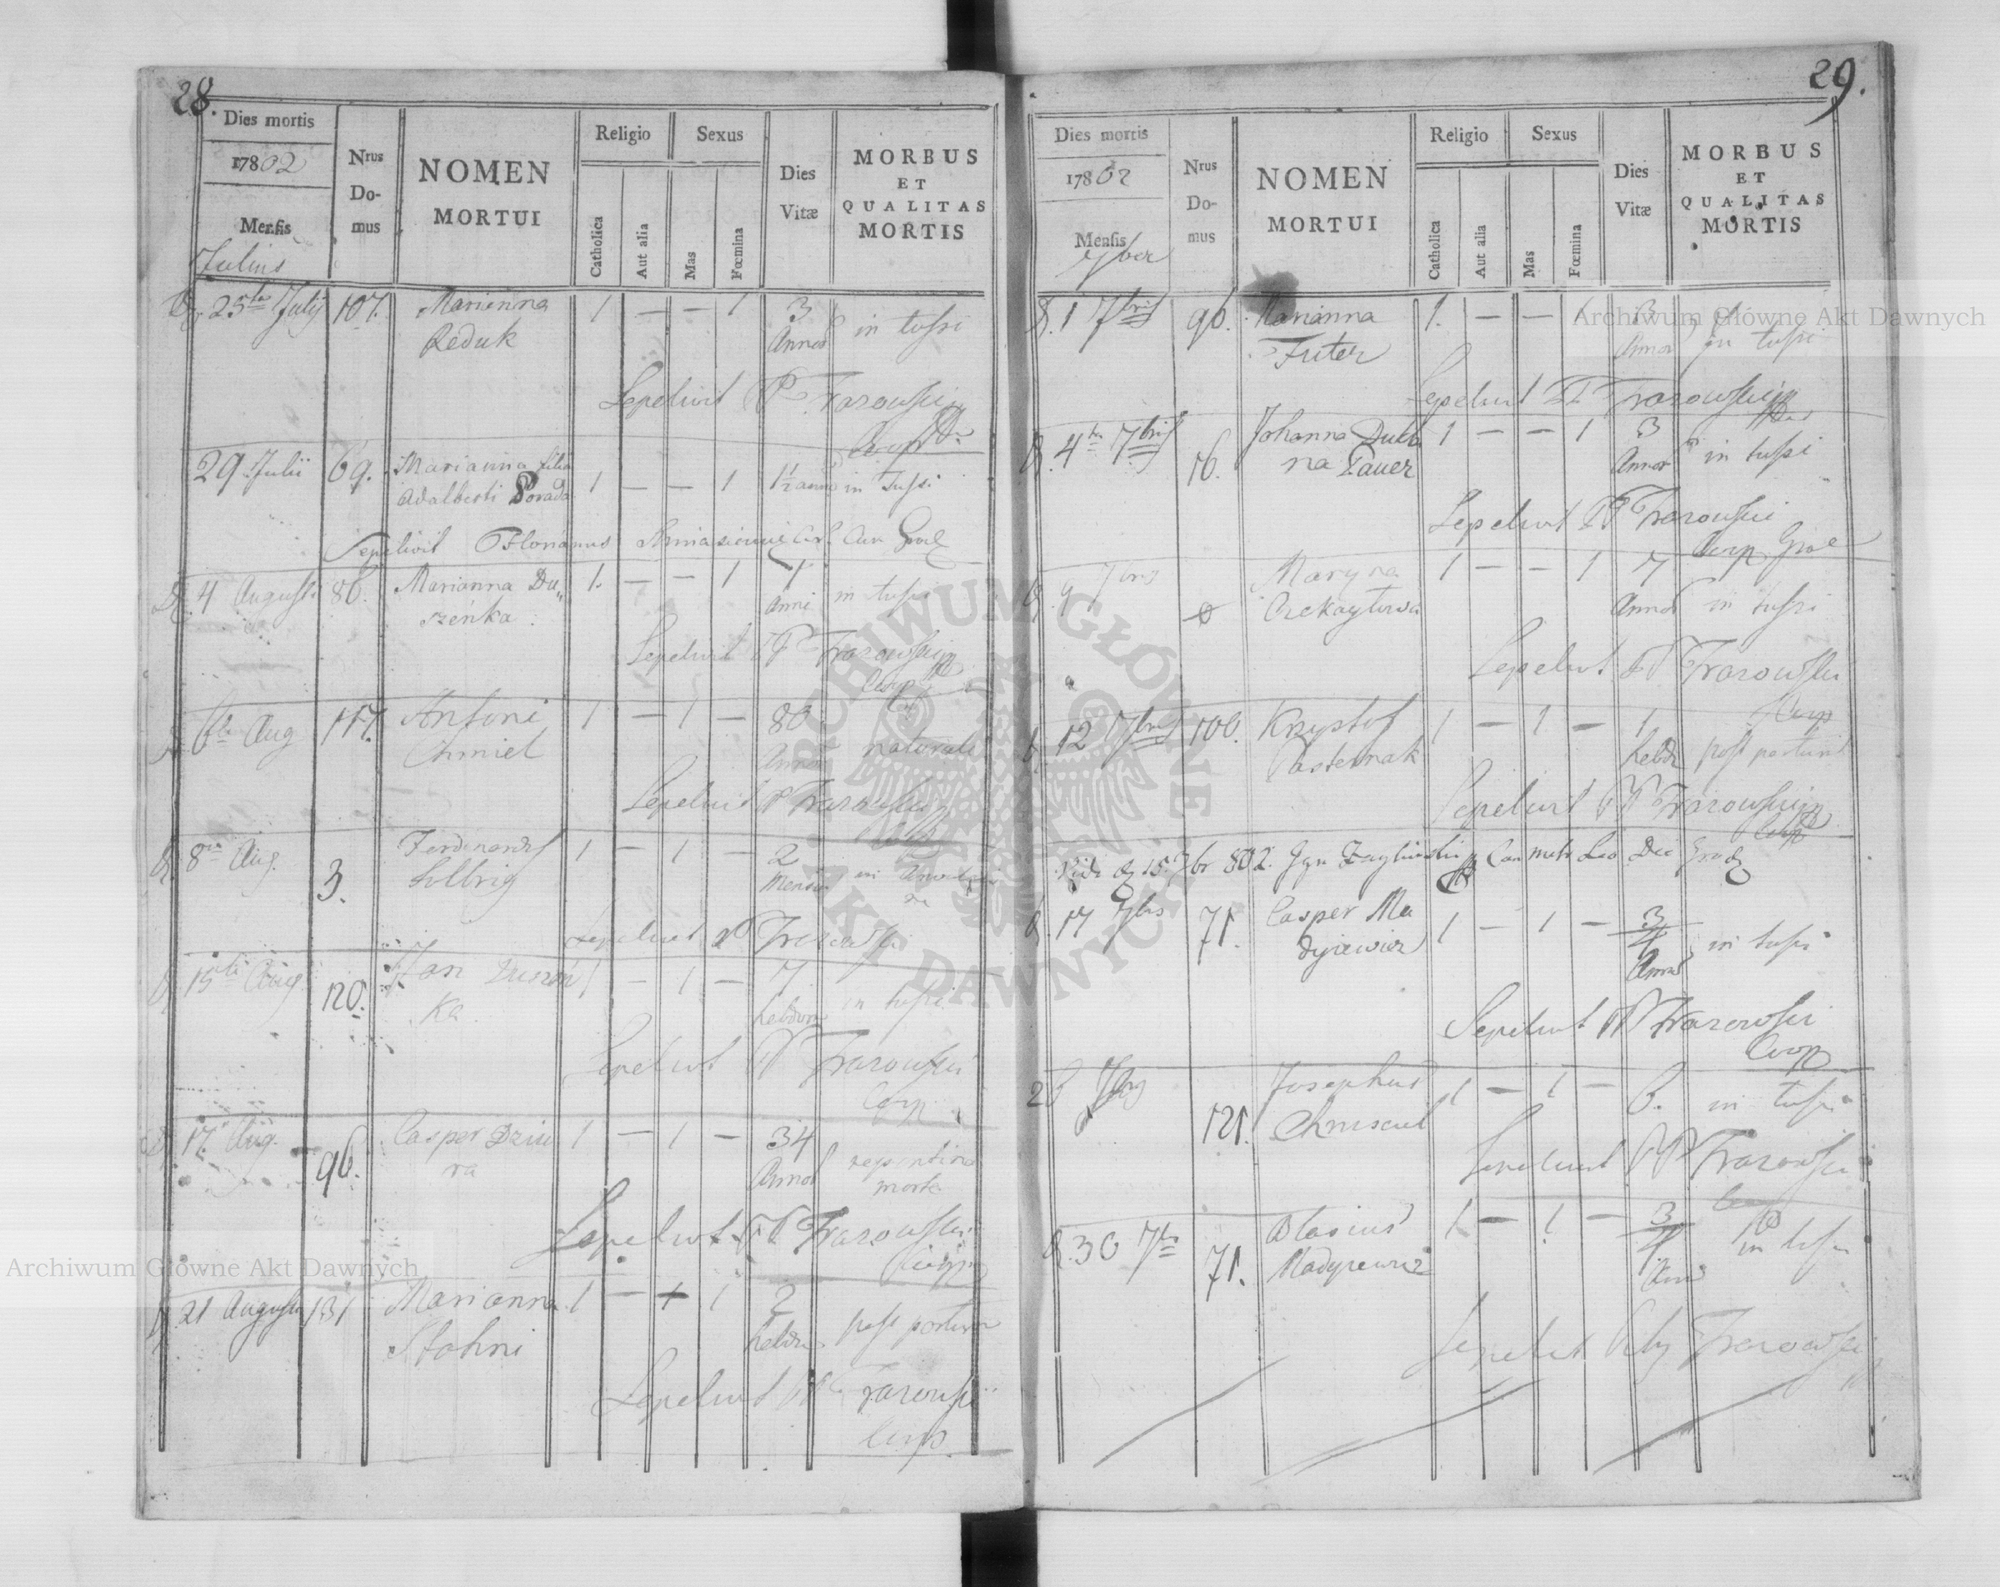 28.
Dies mortis
1802
Mensis
Julius
Nrus Do- mus
NOMEN
MORTUI
Religio
Catholica
Aut alia
Sexus
Mas
Fœmina
Dies
Vitæ
MORBUS
ET
QUALITAS
MORTIS
25ta July 107. Marianna 1 — — 1 3 in tussi
Reduk Annor
Sepelivit P Frarowski
Coop
29 Julii 69. Marianna filia
Adalberti Porada 1 — — 1 1½ anni in Tussi
Sepelivit Florianus
4 Augusti 86. Marianna Du„ 1. — — 1 1 in tussi
szeńka Anni
Sepelivit P Frarowski
Coop
6ta Aug 117. Antoni 1 — 1 — 80
Chmiel Annor naturali
Sepelivit P Frarowski
8va Aug. 3. Ferdinandus 1 — 1 — 2
Sollrig Mensiu
Sepelivit P Frarowski
15ta Aug 120. Jan Duszeń 1 — 1 — 7
ka. hebdom in tussi
Sepelivit P Frarowski
Coop
17. Aug. 96. Casper Dziu 1 — 1 — 34 repentina
ra Annor morte
Sepelivit P Frarowski
Coop
21 Augusti 131 Marianna 1 — + 1 2
Stohni hebdo post partum
Sepelivit P Frarowski
Coop
29.
Dies mortis
1802
Mensis
7ber
Nrus Do- mus
NOMEN
MORTUI
Religio
Catholica
Aut alia
Sexus
Mas
Fœmina
Dies
Vitæ
MORBUS
ET
QUALITAS
MORTIS
1 7bris 96. Marianna 1. — — 1 3
Futer Annor in tussi
Sepelivit P Frarowski
4ta 7bris 16. Johanna 1 — — 1 3
na Pauer Annor in tussi
Sepelivit P Frarowski
Coop
9 7bris Maryna 1 — — 1 7
Czekaytowa Annor in tussi
Sepelivit P Frarowski
Coop
12 7bris 106. Krzystof 1 — 1 — 1
Pasternak hebdo post partum
Sepelivit P Frarowski
Coop
Vidi 15. 7br 802.
17 7bris 71. Casper Ma 1 — 1 — 3/4
dyiewicz Anni in tussi
Sepelivit P Frarowski
Coop
7bris 121. Josephus 1 — 1 — 6. in tussi
Sepelivit P Frarowski
30 7bris 71. Blasius 1 — 1 — 3/4 in tussi
Madyiewicz Anni
Sepelivit Frarowski
Archiwum Główne Akt Dawnych
Archiwum Główne Akt Dawnych
ARCHIWUM GŁÓWNE AKT DAWNYCH